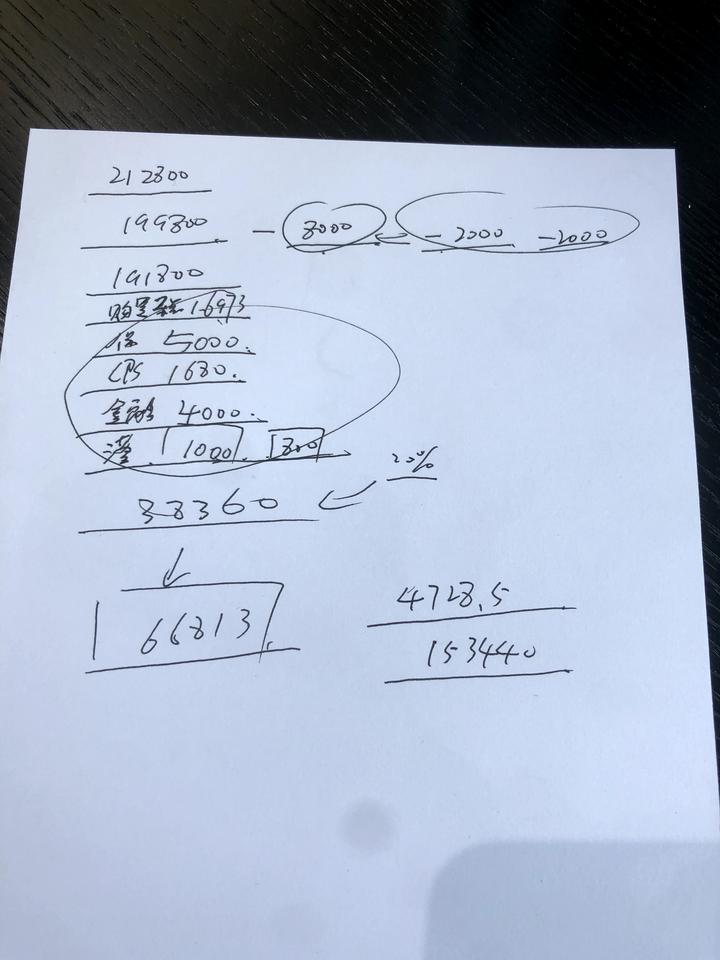 212800
199800 - 8000 ← -2000 -2000
191800
购置税 16973
保 5000.
GPS 1680.
金融 4000.
1000 800
20%
38360
66813
4728.5
153440